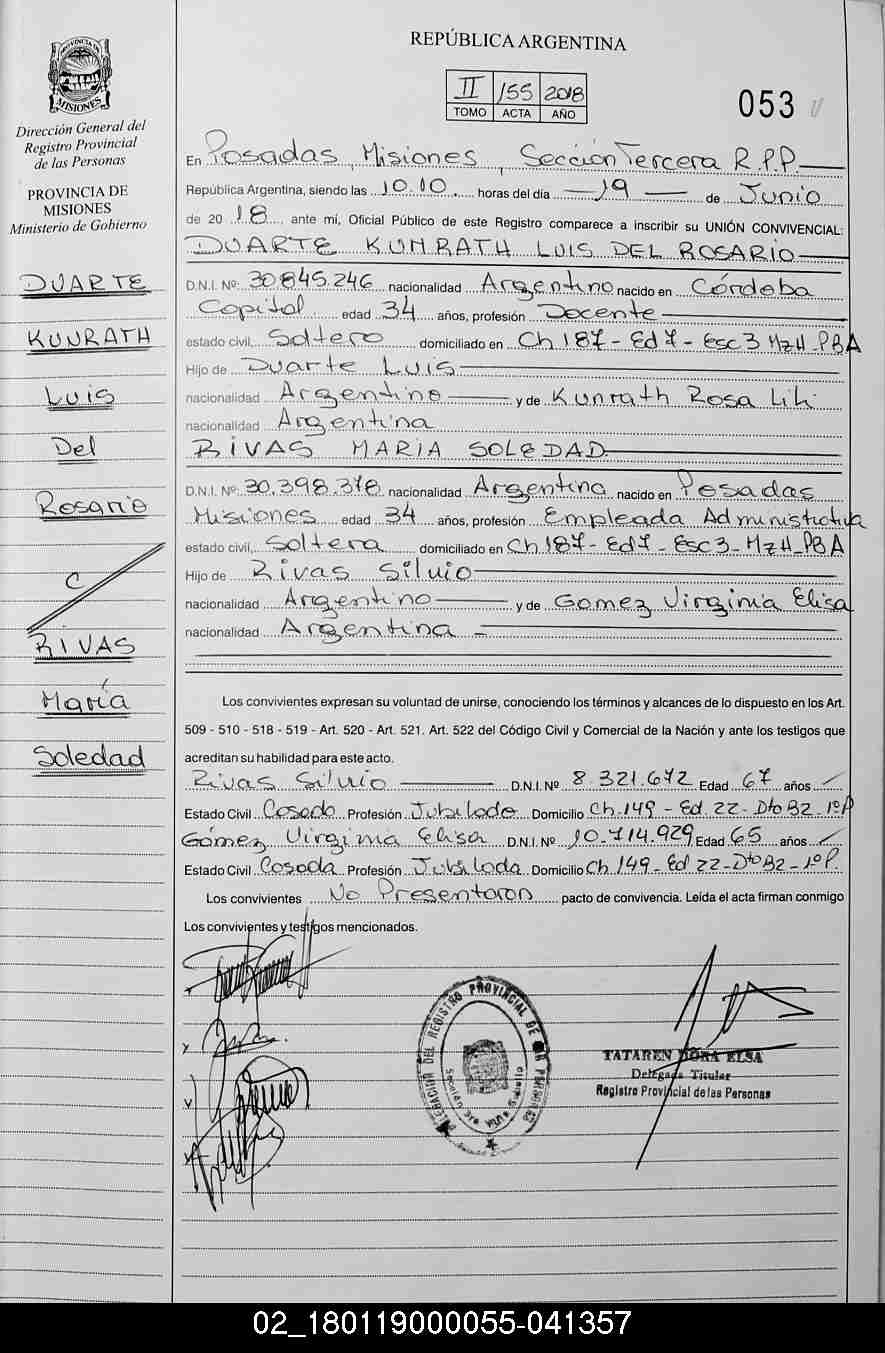 REPÚBLICA ARGENTINA
II 155 2018
TOMO ACTA AÑO
053
PROVINCIA DE
MISIONES
Dirección General del
Registro Provincial
de las Personas
PROVINCIA DE
MISIONES
Ministerio de Gobierno
DUARTE
KUNRATH
Luis
Del
Rosario
C
RIVAS
María
Soledad
En Posadas, Misiones, Sección Tercera R.P.P.
República Argentina, siendo las 10.10 horas del día 19 de Junio
de 20 18 ante mí, Oficial Público de este Registro comparece a inscribir su UNIÓN CONVIVENCIAL:
DUARTE KUNRATH LUIS DEL ROSARIO
D.N.I. Nº 30.845.246 nacionalidad Argentino nacido en Córdoba
Capital edad 34 años, profesión Docente
estado civil, Soltero domiciliado en Ch 187 - Ed 7 - Esc 3 MzH - PBA
Hijo de Duarte Luis
nacionalidad Argentino y de Kunrath Rosa Lili
nacionalidad Argentina
RIVAS MARIA SOLEDAD
D.N.I. Nº 30.398.378 nacionalidad Argentina nacido en Posadas
Misiones edad 34 años, profesión Empleada Administrativa
estado civil, Soltera domiciliado en Ch 187 - Ed 7 - Esc 3 - MzH - PBA
Hijo de Rivas Silvio
nacionalidad Argentino y de Gomez Virginia Elisa
nacionalidad Argentina
Los convivientes expresan su voluntad de unirse, conociendo los términos y alcances de lo dispuesto en los Art.
509 - 510 - 518 - 519 - Art. 520 - Art. 521. Art. 522 del Código Civil y Comercial de la Nación y ante los testigos que
acreditan su habilidad para este acto.
Rivas Silvio D.N.I. Nº 8.321.672 Edad 67 años
Estado Civil Casado Profesión Jubilado Domicilio Ch. 149 - Ed. 22 - Dto B2 - 1º P
Gómez Virginia Elisa D.N.I. Nº 10.714.929 Edad 65 años
Estado Civil Casada Profesión Jubilada Domicilio Ch 149 - Ed 22 - Dto B2 - 1º P.
Los convivientes No Presentaron pacto de convivencia. Leída el acta firman conmigo
Los convivientes y testigos mencionados.
DELEGACIÓN DEL REGISTRO PROVINCIAL DE LAS PERSONAS
TATAREN DORA ELSA
Delegada Titular
Registro Provincial de las Personas
02_180119000055-041357